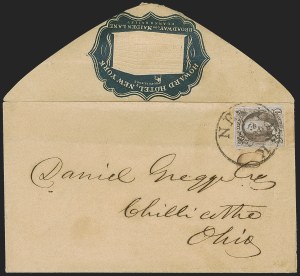 HOWARD HOTEL, NEW YORK
BROADWAY & MAIDEN LANE
NE
Daniel Gregg Esq
Chillicothe
Ohio